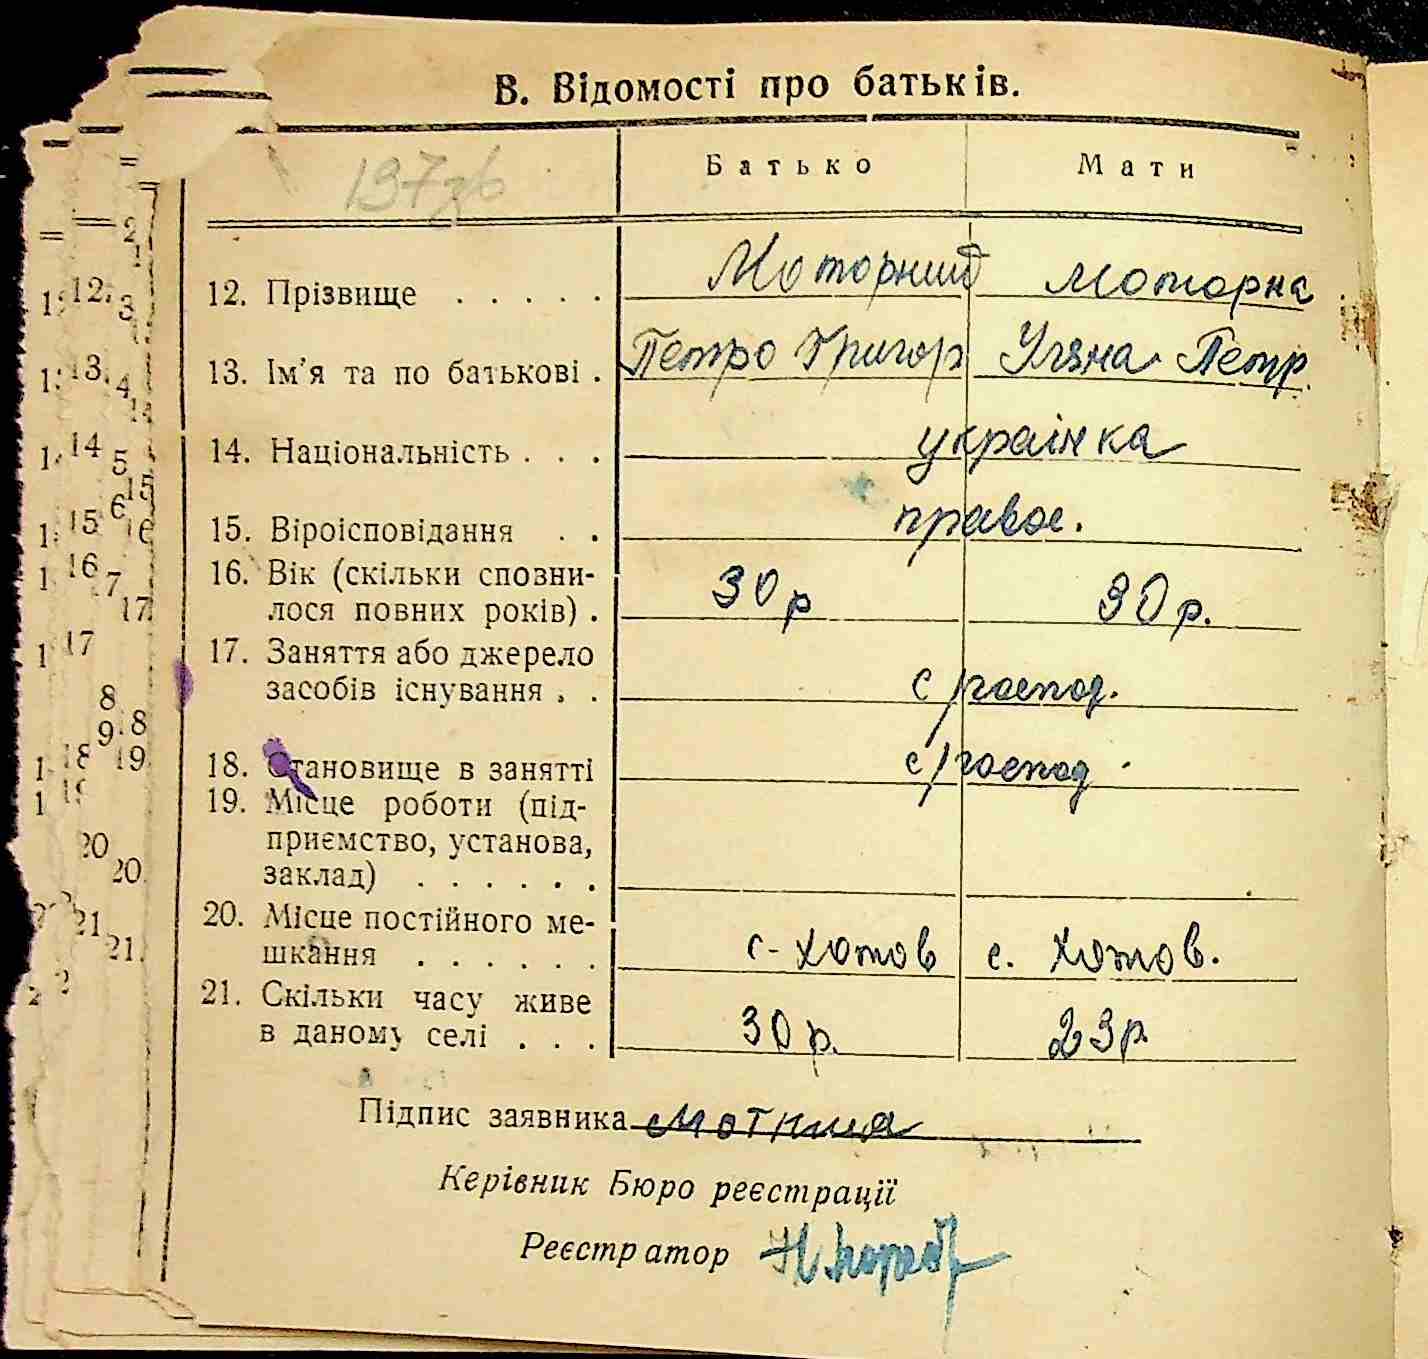 В. Відомості про батьків.
137зв
Батько Мати
12. Прізвище . . . . . Моторний Моторна
13. Ім'я та по батькові . Петро Григор Уляна Петр.
14. Національність . . . українка
15. Віроісповідання . . правос.
16. Вік (скільки сповни-
лося повних років) . 30 р 30 р.
17. Заняття або джерело
засобів існування . . с/господ.
18. Становище в занятті с/господ
19. Місце роботи (під-
приємство, установа,
заклад) . . . . . .
20. Місце постійного ме-
шкання . . . . . . с-Хотов с. Хотов.
21. Скільки часу живе
в даному селі . . . 30 р. 23 р.
Підпис заявника
Керівник Бюро реєстрації
Реєстратор